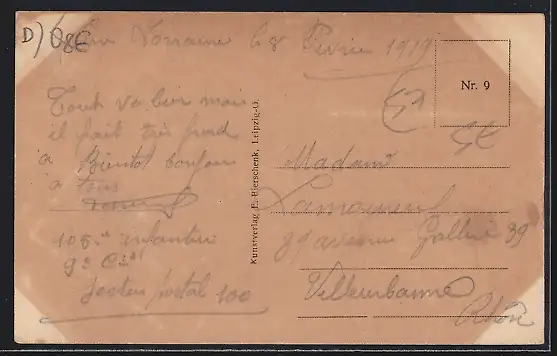 D)
8€
Lorraine le 8 Février 1919
Nr. 9
5€
Tout va bien mais
il fait très froid
à Bientôt bonjour
à tous
105e infanterie
9e Cie
Secteur postal 100
Kunstverlag E. Bierschenk, Leipzig-O.
Madame
99 avenue Galline 39
Villeurbanne
Rhône